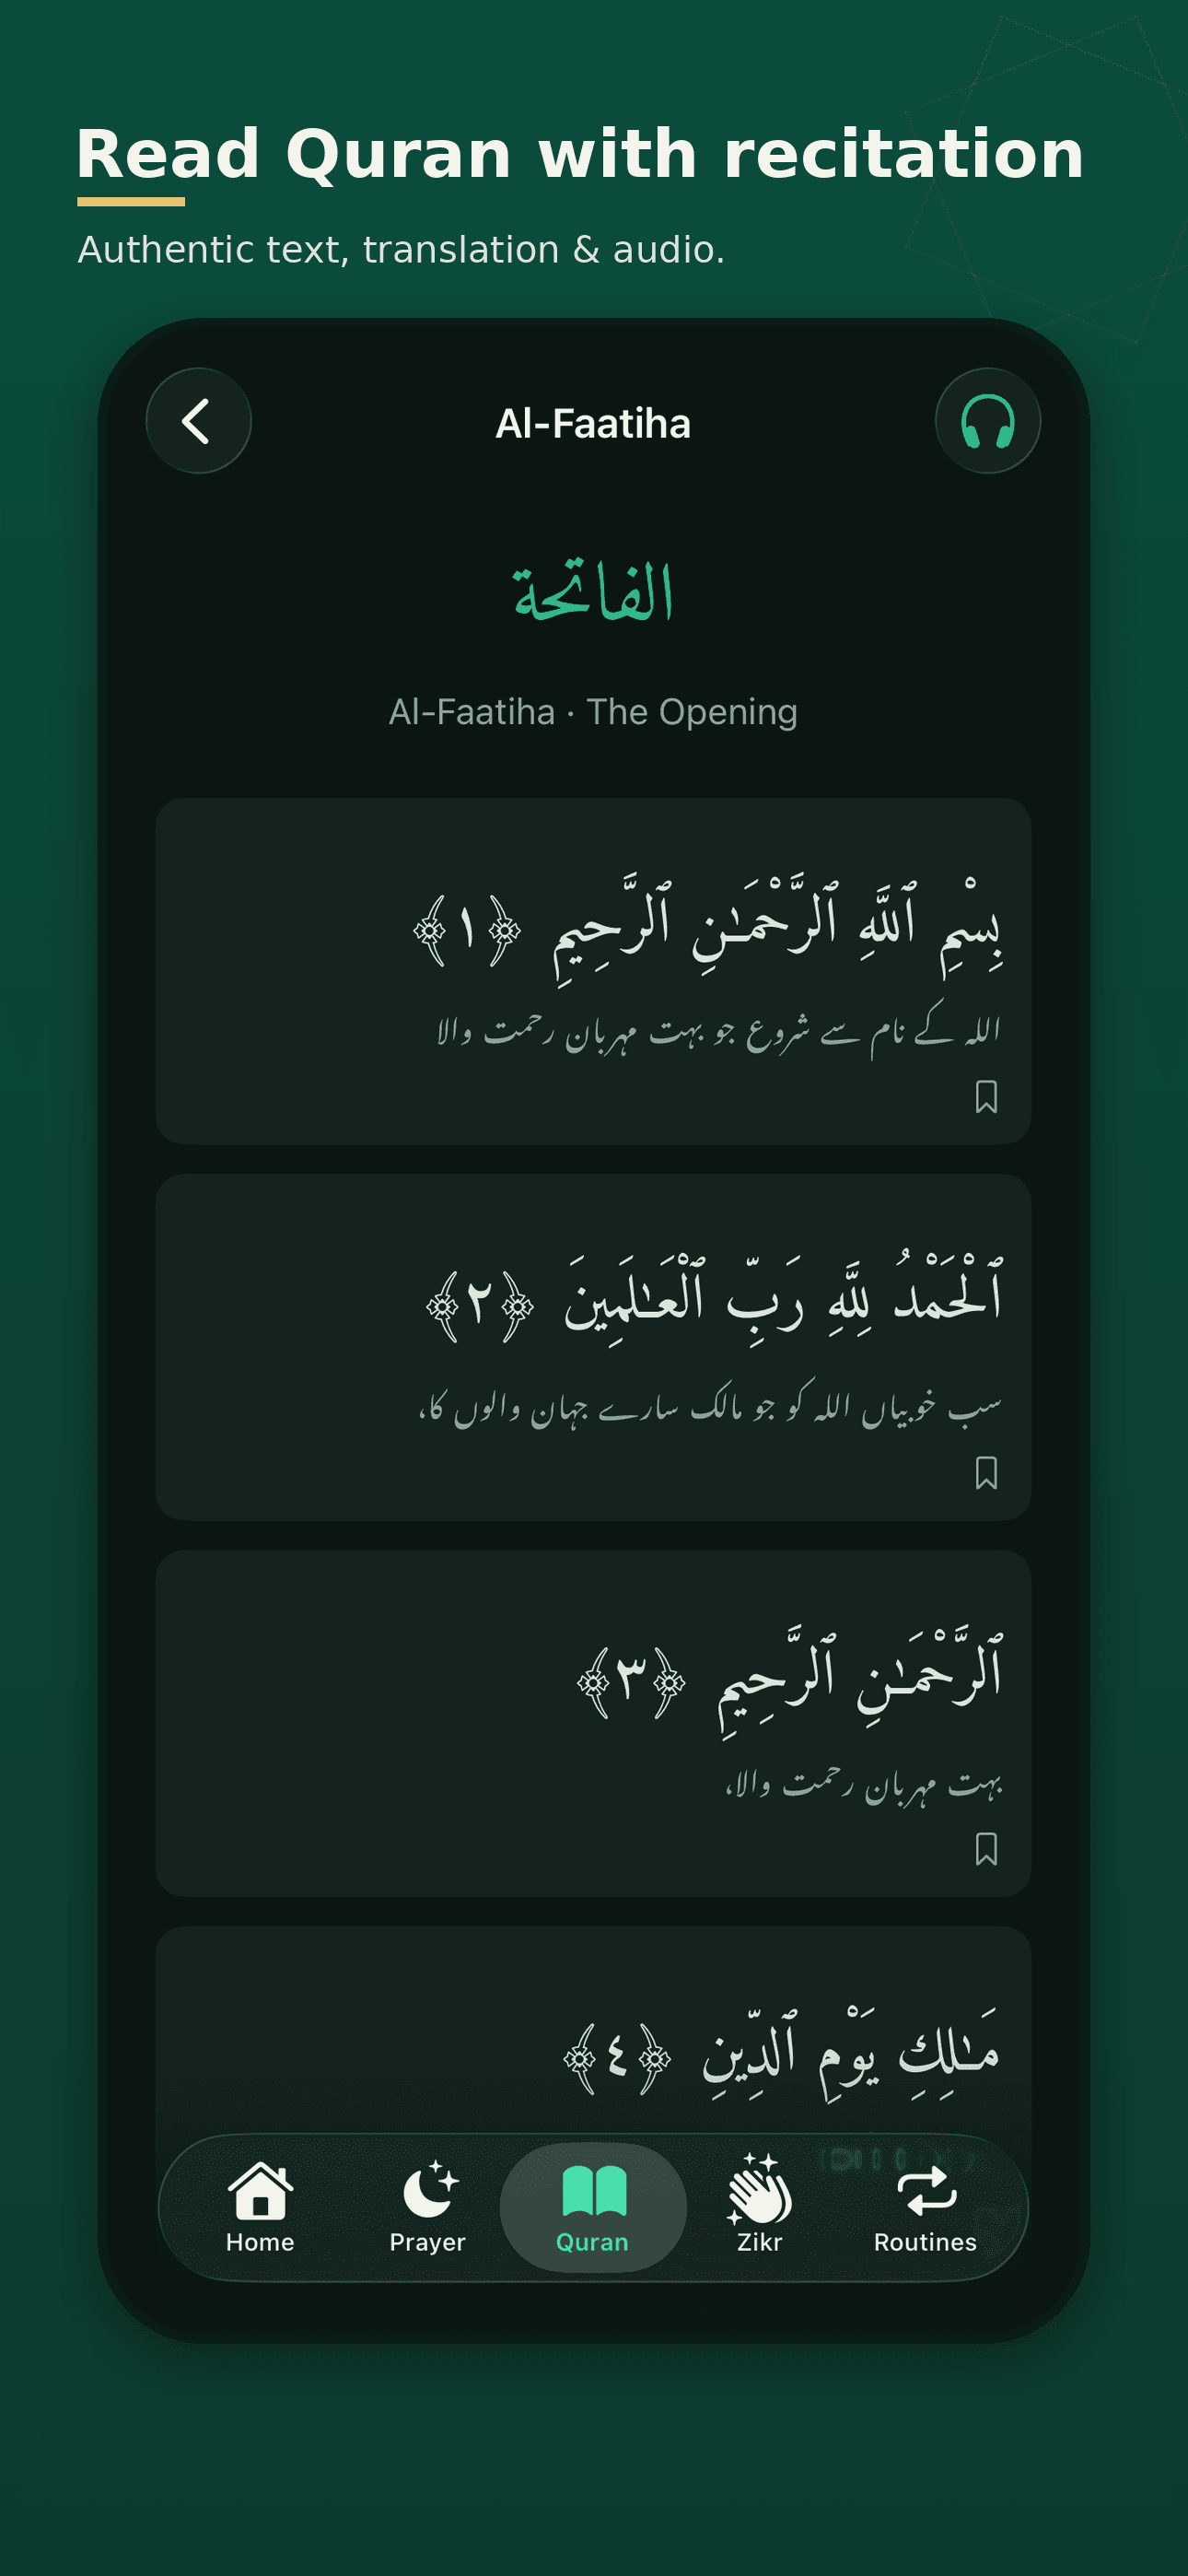 Read Quran with recitation
Authentic text, translation & audio.
Al-Faatiha
الفاتحة
Al-Faatiha · The Opening
بِسْمِ ٱللَّهِ ٱلرَّحْمَـٰنِ ٱلرَّحِيمِ ﴿١﴾
اللہ کے نام سے شروع جو بہت مہربان رحمت والا
ٱلْحَمْدُ لِلَّهِ رَبِّ ٱلْعَـٰلَمِينَ ﴿٢﴾
سب خوبیاں اللہ کو جو مالک سارے جہان والوں کا،
ٱلرَّحْمَـٰنِ ٱلرَّحِيمِ ﴿٣﴾
بہت مہربان رحمت والا،
مَـٰلِكِ يَوْمِ ٱلدِّينِ ﴿٤﴾
Home Prayer Quran Zikr Routines